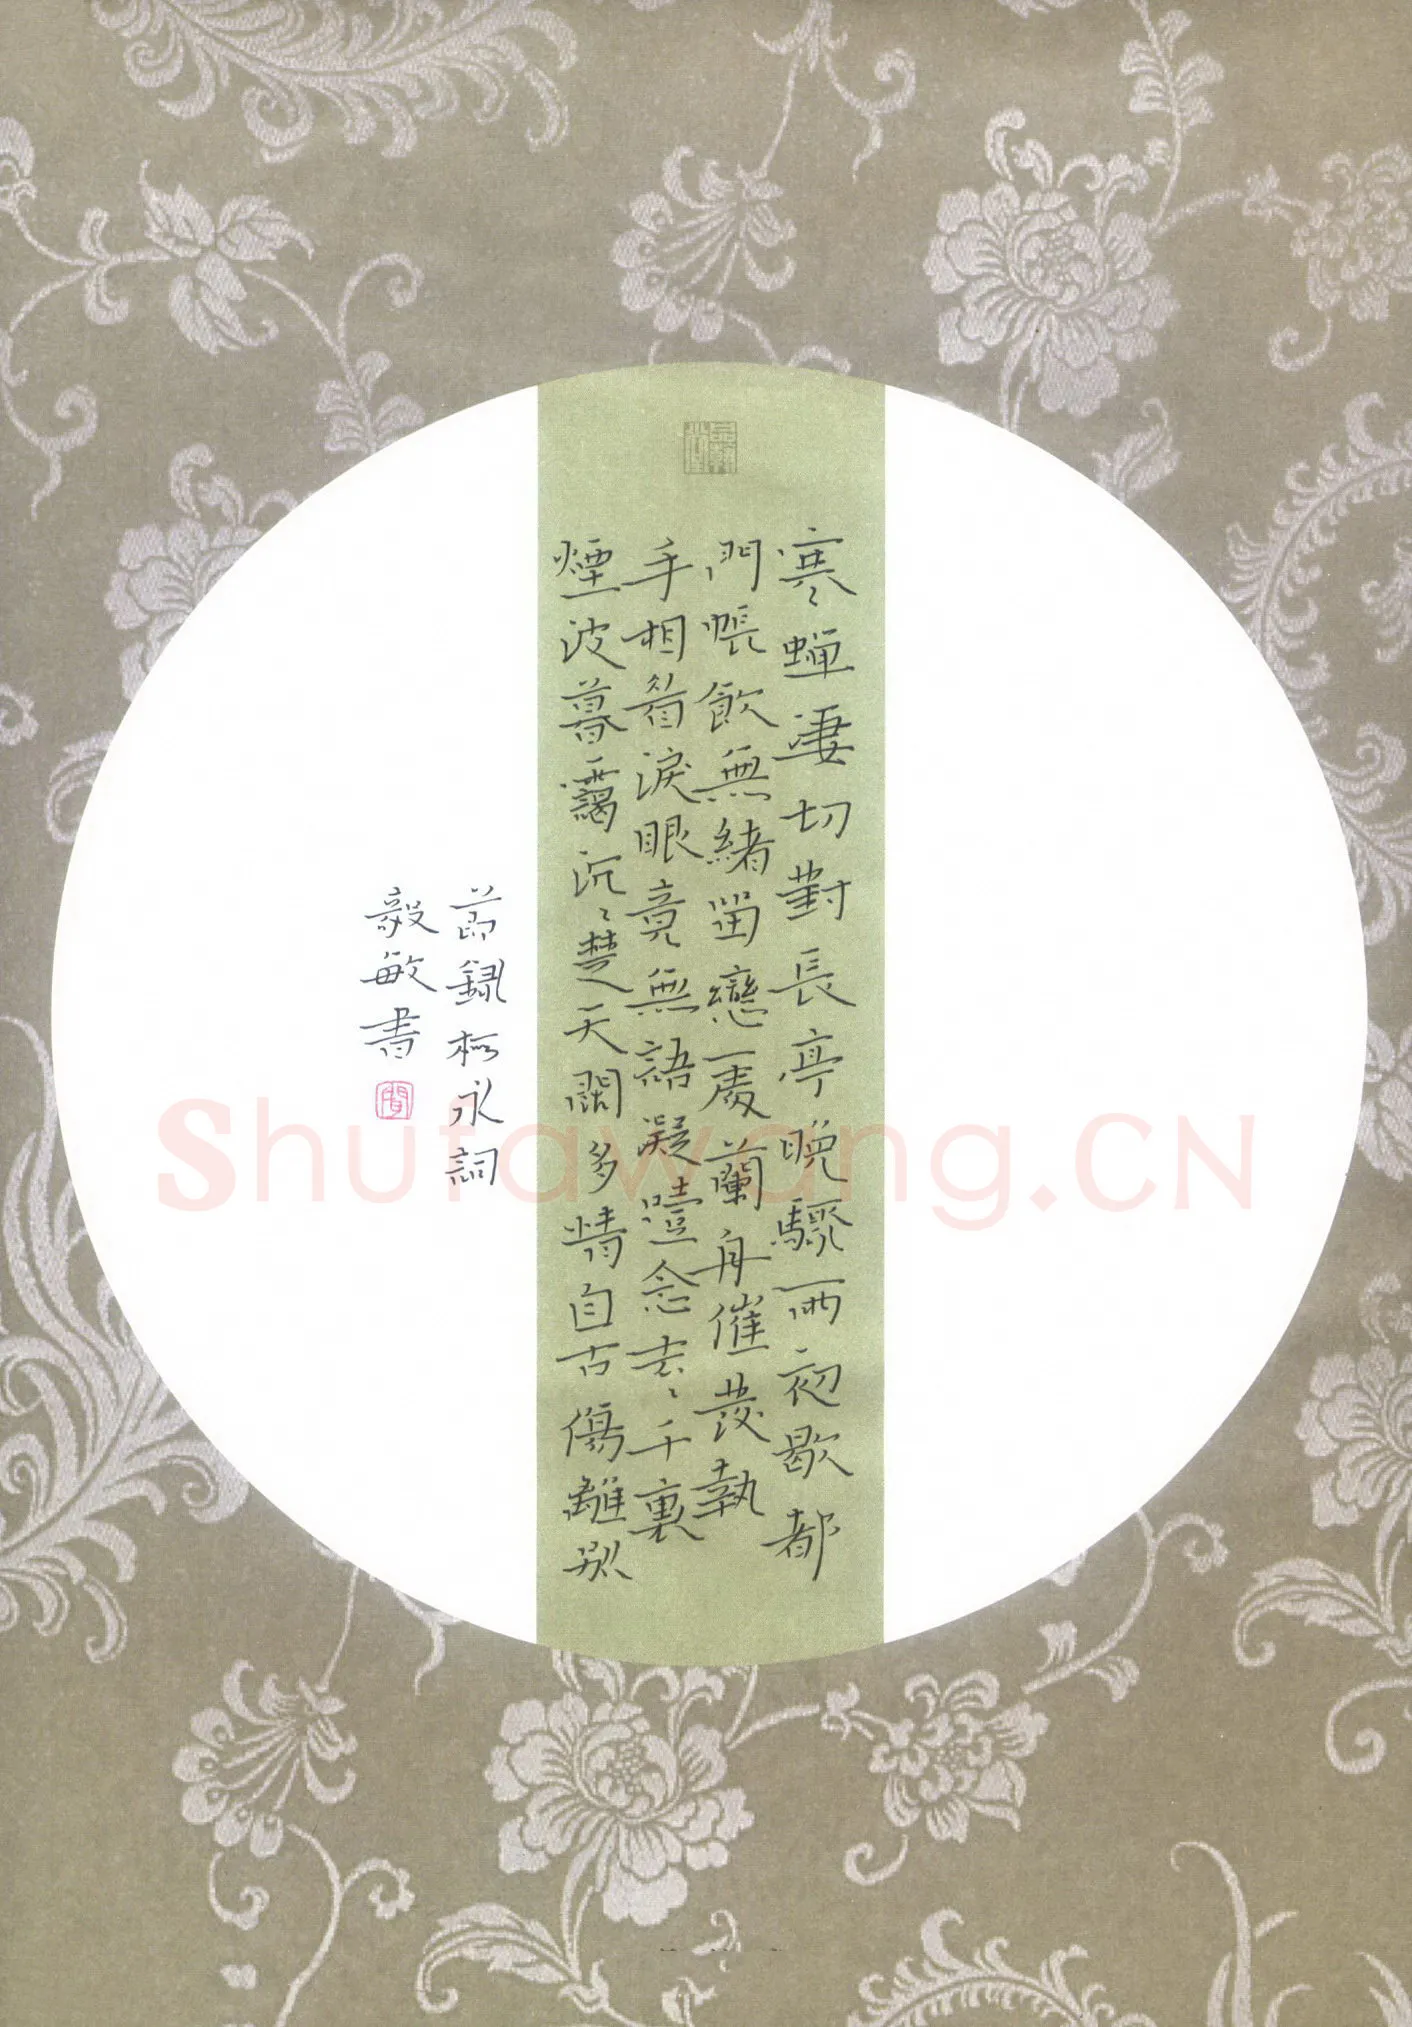 寒蝉淒切對長亭晚驟雨初歇都
門帳飲無緒留戀處蘭舟催發執
手相看淚眼竟無語凝噎念去〻千裏
煙波暮靄沉〻楚天闊多情自古傷離別
節錄柳永詞
毅敏書
Shufawang.CN